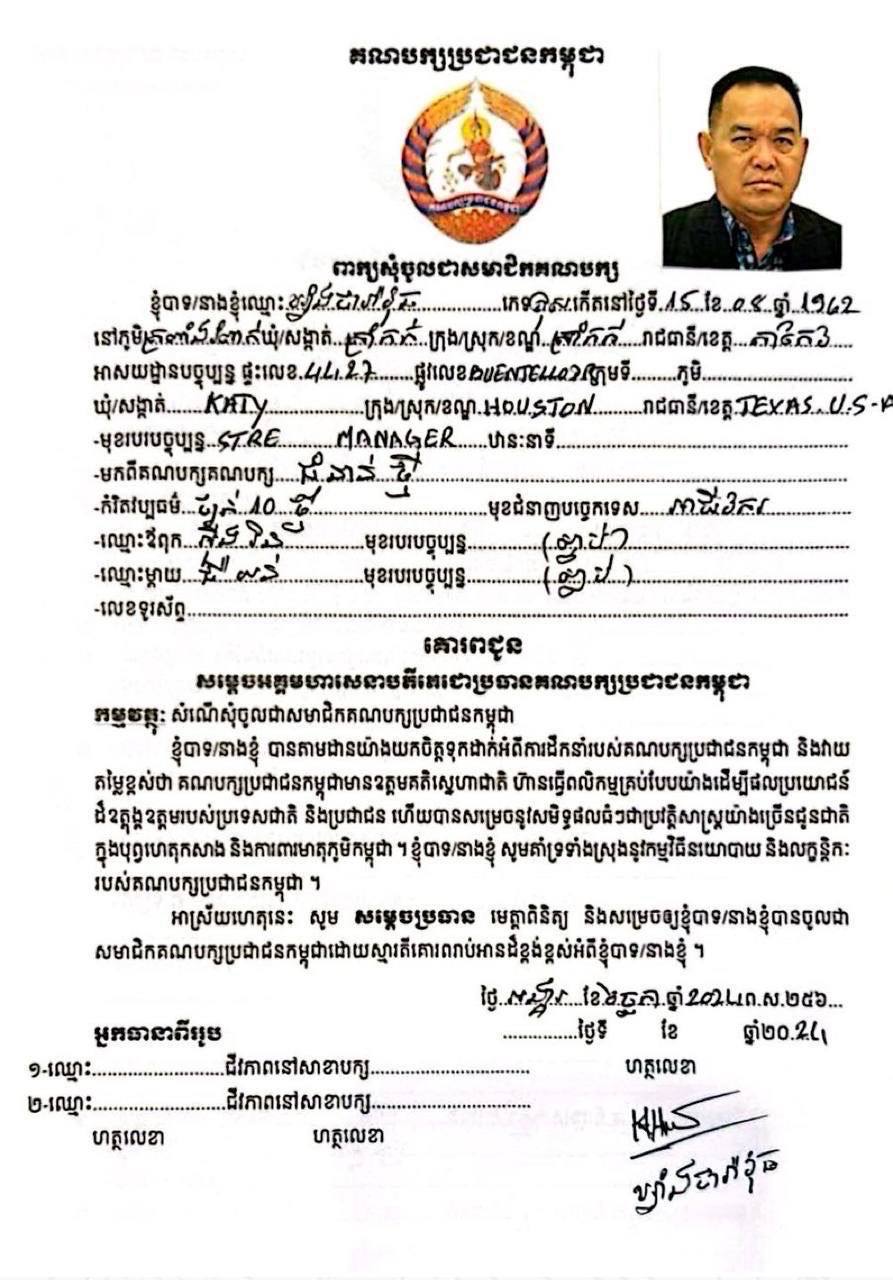 គណបក្សប្រជាជនកម្ពុជា
ពាក្យសុំចូលជាសមាជិកគណបក្ស
ខ្ញុំបាទ/នាងខ្ញុំឈ្មោះ ភេទ កើតនៅថ្ងៃទី 15 ខែ ០៥ ឆ្នាំ 1962
នៅភូមិ ឃុំ/សង្កាត់ ត្រាំកក់ ក្រុង/ស្រុក/ខណ្ឌ ត្រាំកក់ រាជធានី/ខេត្ត តាកែវ
អាសយដ្ឋានបច្ចុប្បន្ន ផ្ទះលេខ 4427 ផ្លូវលេខ ក្រុមទី ភូមិ
ឃុំ/សង្កាត់ KATY ក្រុង/ស្រុក/ខណ្ឌ HOUSTON រាជធានី/ខេត្ត TEXAS U-S-A
-មុខរបរបច្ចុប្បន្ន STRE MANAGER ឋានៈនាទី
-មកពីគណបក្សគណបក្ស ជំនាន់ថ្មី
-កំរិតវប្បធម៌ ថ្នាក់ 10 ថ្មី មុខជំនាញបច្ចេកទេស អាជីវករ
-ឈ្មោះឪពុក មុខរបរបច្ចុប្បន្ន (ស្លាប់)
-ឈ្មោះម្តាយ មុខរបរបច្ចុប្បន្ន (ស្លាប់)
-លេខទូរស័ព្ទ
គោរពជូន
សម្តេចអគ្គមហាសេនាបតីតេជោប្រធានគណបក្សប្រជាជនកម្ពុជា
កម្មវត្ថុ: សំណើសុំចូលជាសមាជិកគណបក្សប្រជាជនកម្ពុជា
ខ្ញុំបាទ/នាងខ្ញុំ បានតាមដានយ៉ាងយកចិត្តទុកដាក់អំពីការដឹកនាំរបស់គណបក្សប្រជាជនកម្ពុជា និងវាយ
តម្លៃខ្ពស់ថា គណបក្សប្រជាជនកម្ពុជាមានឧត្តមគតិស្នេហាជាតិ ហ៊ានធ្វើពលិកម្មគ្រប់បែបយ៉ាងដើម្បីផលប្រយោជន៍
ដ៏ឧត្តុង្គឧត្តមរបស់ប្រទេសជាតិ និងប្រជាជន ហើយបានសម្រេចនូវសមិទ្ធផលធំៗជាប្រវត្តិសាស្ត្រយ៉ាងច្រើនជូនជាតិ
ក្នុងបុព្វហេតុកសាង និងការពារមាតុភូមិកម្ពុជា ។ ខ្ញុំបាទ/នាងខ្ញុំ សូមគាំទ្រទាំងស្រុងនូវកម្មវិធីនយោបាយ និងលក្ខន្តិកៈ
របស់គណបក្សប្រជាជនកម្ពុជា ។
អាស្រ័យហេតុនេះ សូម សម្តេចប្រធាន មេត្តាពិនិត្យ និងសម្រេចឲ្យខ្ញុំបាទ/នាងខ្ញុំបានចូលជា
សមាជិកគណបក្សប្រជាជនកម្ពុជាដោយស្មារតីគោរពរាប់អានដ៏ខ្ពង់ខ្ពស់អំពីខ្ញុំបាទ/នាងខ្ញុំ ។
ថ្ងៃ អង្គារ ខែ មិថុនា ឆ្នាំ 2024 ព.ស.២៥៦
អ្នកធានាពីររូប
ថ្ងៃទី ខែ ឆ្នាំ២០24
១-ឈ្មោះ ជីវភាពនៅសាខាបក្ស ហត្ថលេខា
២-ឈ្មោះ ជីវភាពនៅសាខាបក្ស
ហត្ថលេខា ហត្ថលេខា